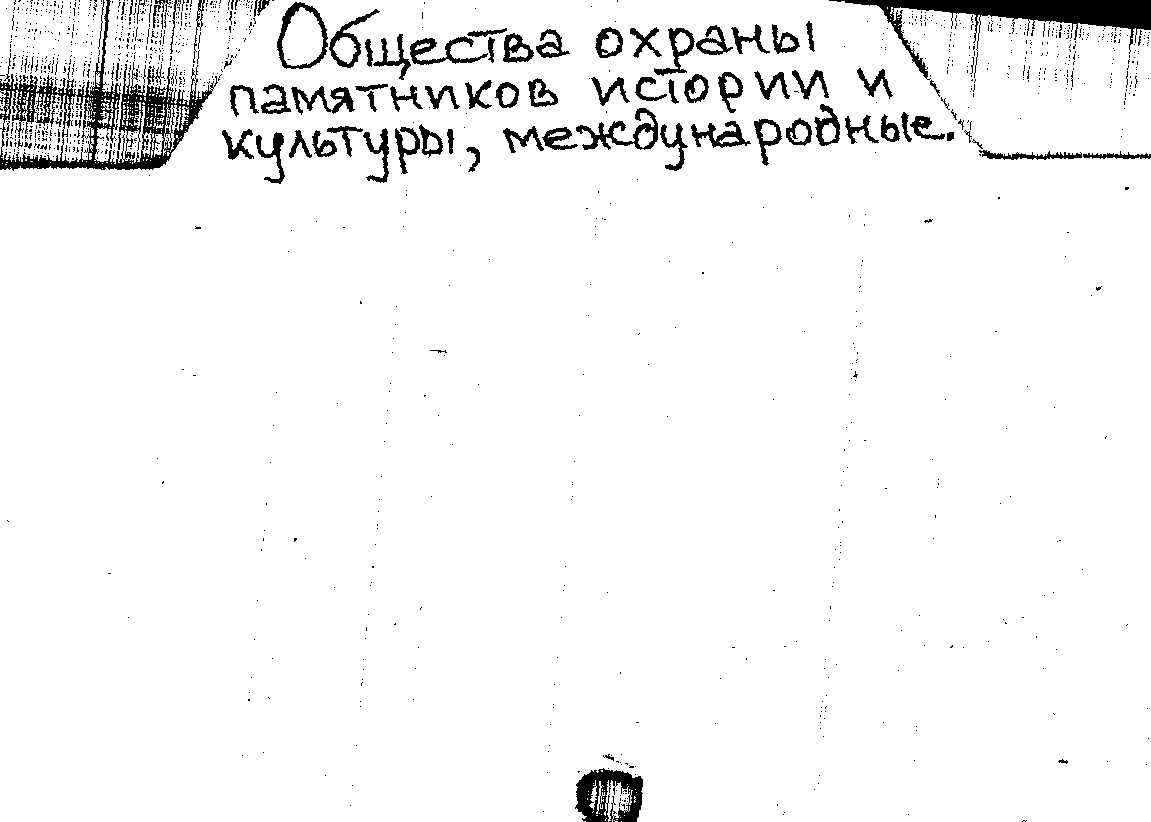 Общества охраны
памятников истории и
культуры, международные.